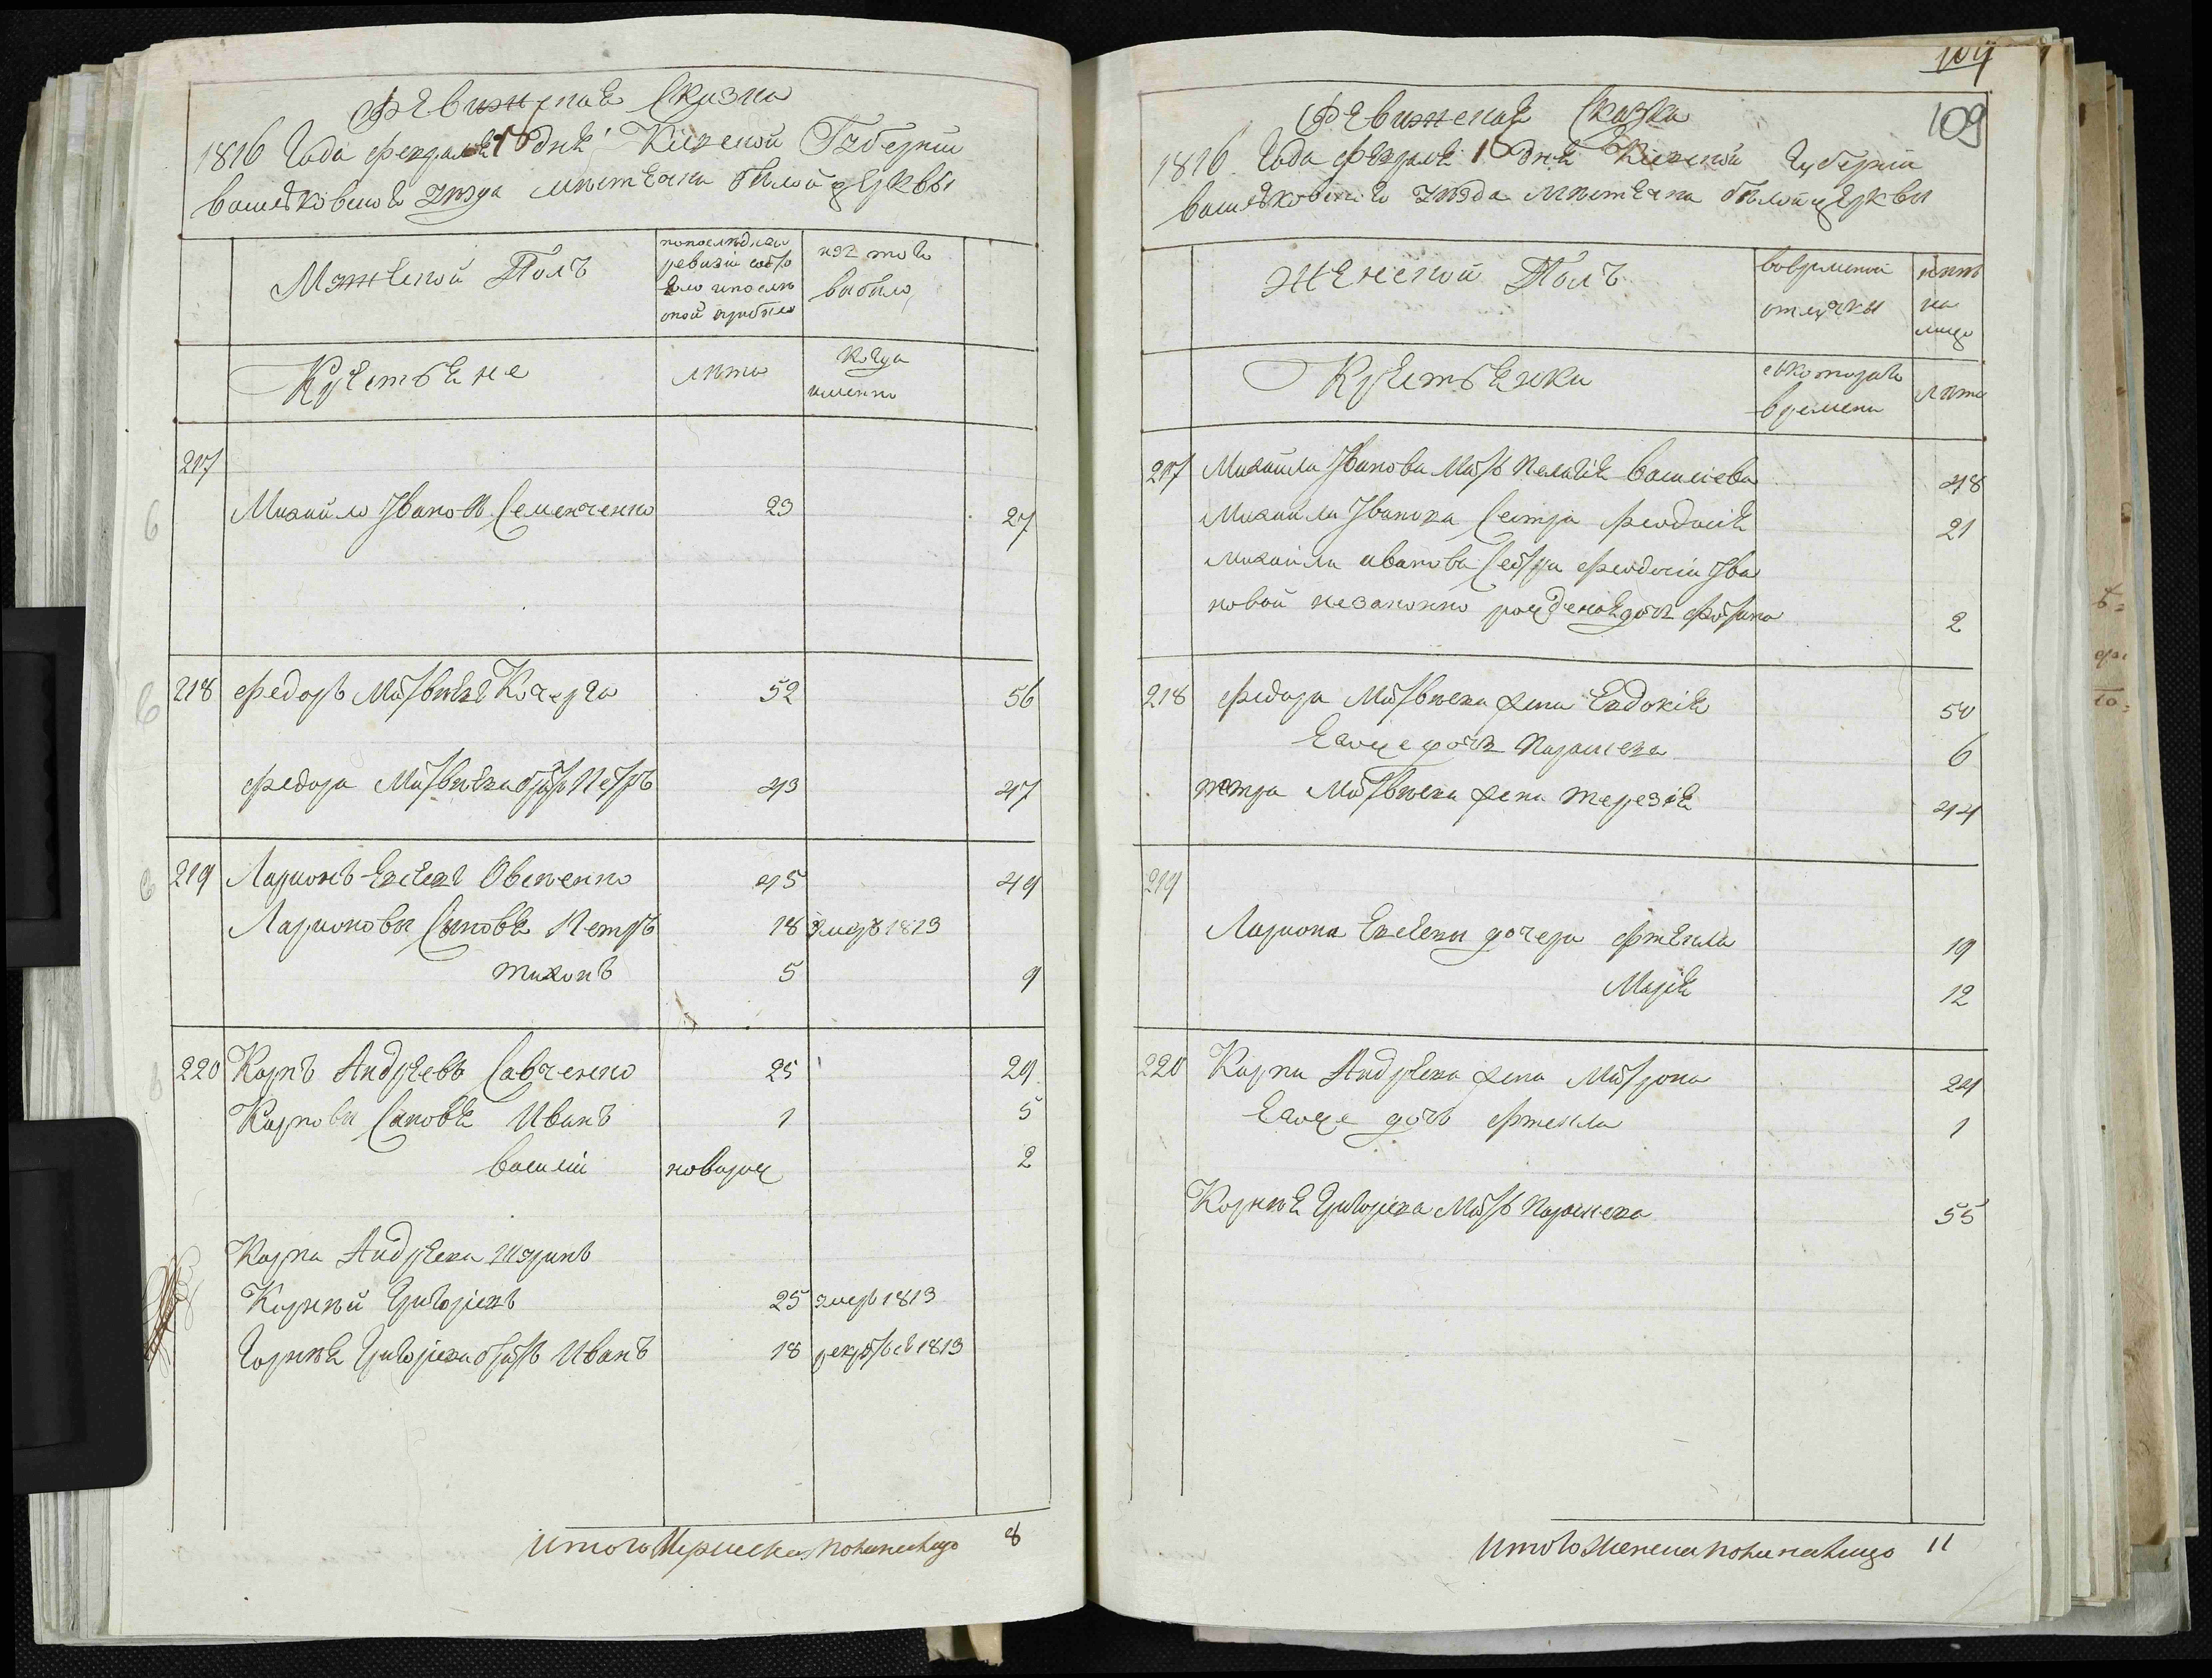 Ревижская Сказка
1816 Года февраля 15 дня Киевской Губернии
васильковского уезда местечка белой церкви
Мужеской Полъ
попоследней
ревизии состо
яло и после
оной прибыло
изъ того
выбыло
Крестьяне
лета
когда
именно
217
Михайло Ивановъ Семенченко 23 27
218 Федоръ Матвеевъ Кочерга 52 56
Федора Матвеева братъ Петръ 43 47
219 Ларионъ Евсеевъ Овсиенко 45 49
Ларионовы Сыновья Петръ 18 умеръ 1813
тихонъ 5 9
220 Карпъ Андреевъ Савченко 25 29
Карповы Сыновья Иванъ 1 5
василий новорож 2
Карпа Андреева шуринъ
Корней Григориевъ 25 умеръ 1813
Горнея Григориева братъ Иванъ 18 рекрутъ 1813
итого мужеска пола налицо 8
109
109
Ревижская Сказка
1816 Года февраля 15 дня Киевской Губернии
васильковского уезда местечка белой церкви
Женской Полъ
вовременной
отлучки
ныне
на
лицо
Крестьянки
съ котораго
времени
лета
217 Михайла Иванова Мать Пелагия василиева 48
Михайла Иванова Сестра Феодосия 21
михайла иванова Сестры Феодосии Ива
новой незаконно рожденная дочь 2
218 Федора Матвеева жена Евдокия 50
Егоже дочь Параскева 6
петра Матвеева жена терезия 44
219
Лариона Евсеева дочери Фтекла 19
Мария 12
220 Карпа Андреева жена Матрона 24
Егоже дочь Фтекла 1
Корнея Григориева Мать Параскева 55
Итого женска пола налицо 11